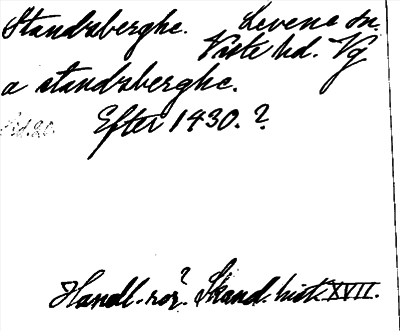 Standsberghe. Levene sn.
Viste hd. Vg
a standsberghe.
Efter 1430.?
Handl. rör? Skand. hist. XVII.